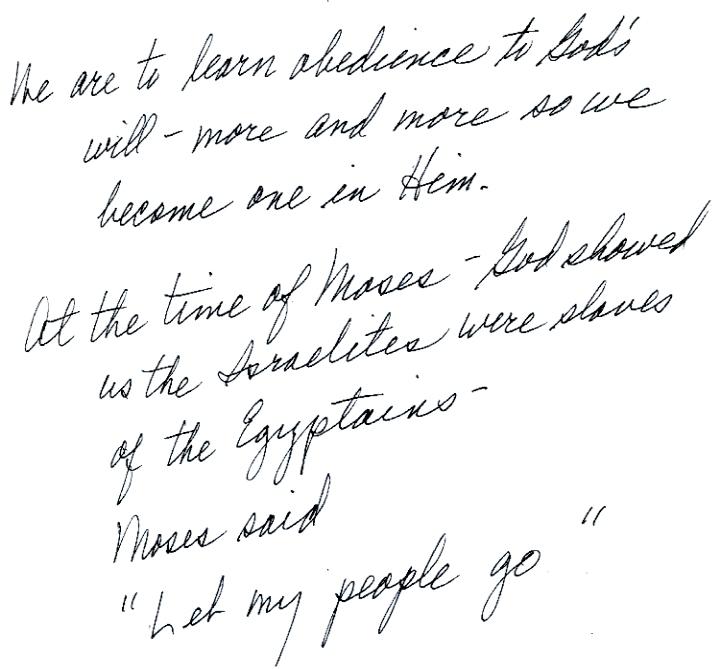 We are to learn obedience to God's
will - more and more so we
become one in Him.
At the time of Moses - God showed
us the Israelites were slaves
of the Egyptains -
Moses said
"Let my people go"